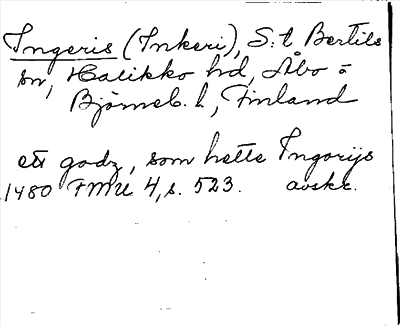 Ingeris (Inkeri), S:t Bertils
sn, Halikko hd, Åbo o
Björneb. l, Finland
ett godz, som hette Ingorijs
1480 FMU 4, s. 523. avskr.